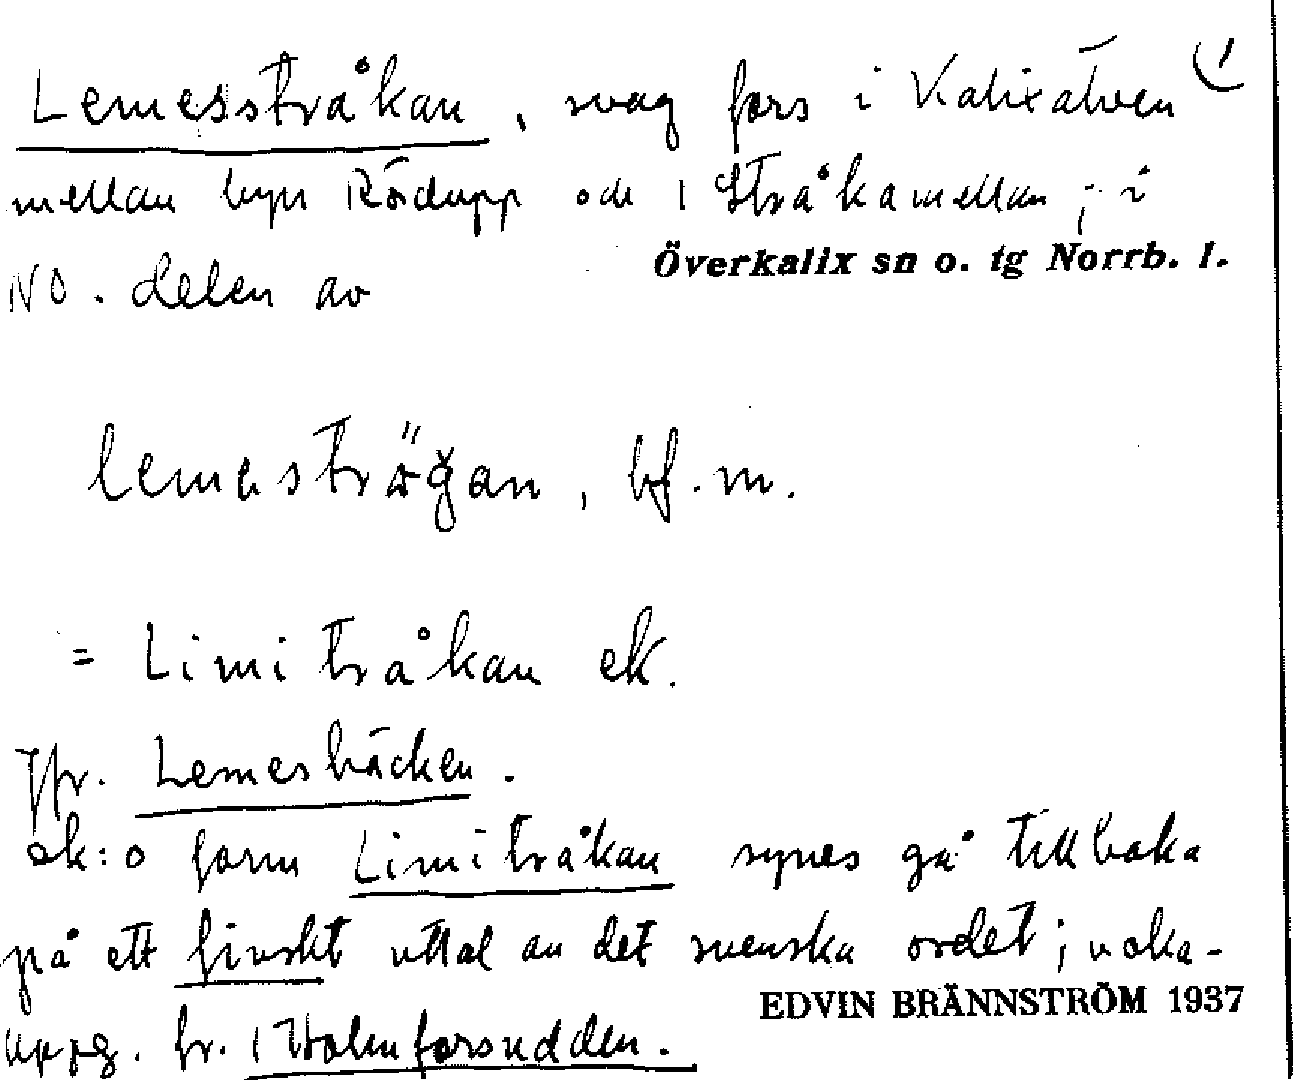 Lemesstråkan, svag fors i Kalixälven (1
mellan byn Rödupp och 1 Stråkamellan; i
Överkalix sn o. tg Norrb. l.
NO. delen av
lemeströgan, bf.m.
= Limitråkan ek.
Jfr. Lemesbäcken.
ek:s form Limitråkan synes gå tillbaka
på ett finskt uttal av det svenska ordet;
EDVIN BRÄNNSTRÖM 1937
uppg. fr. Holmforsudden.